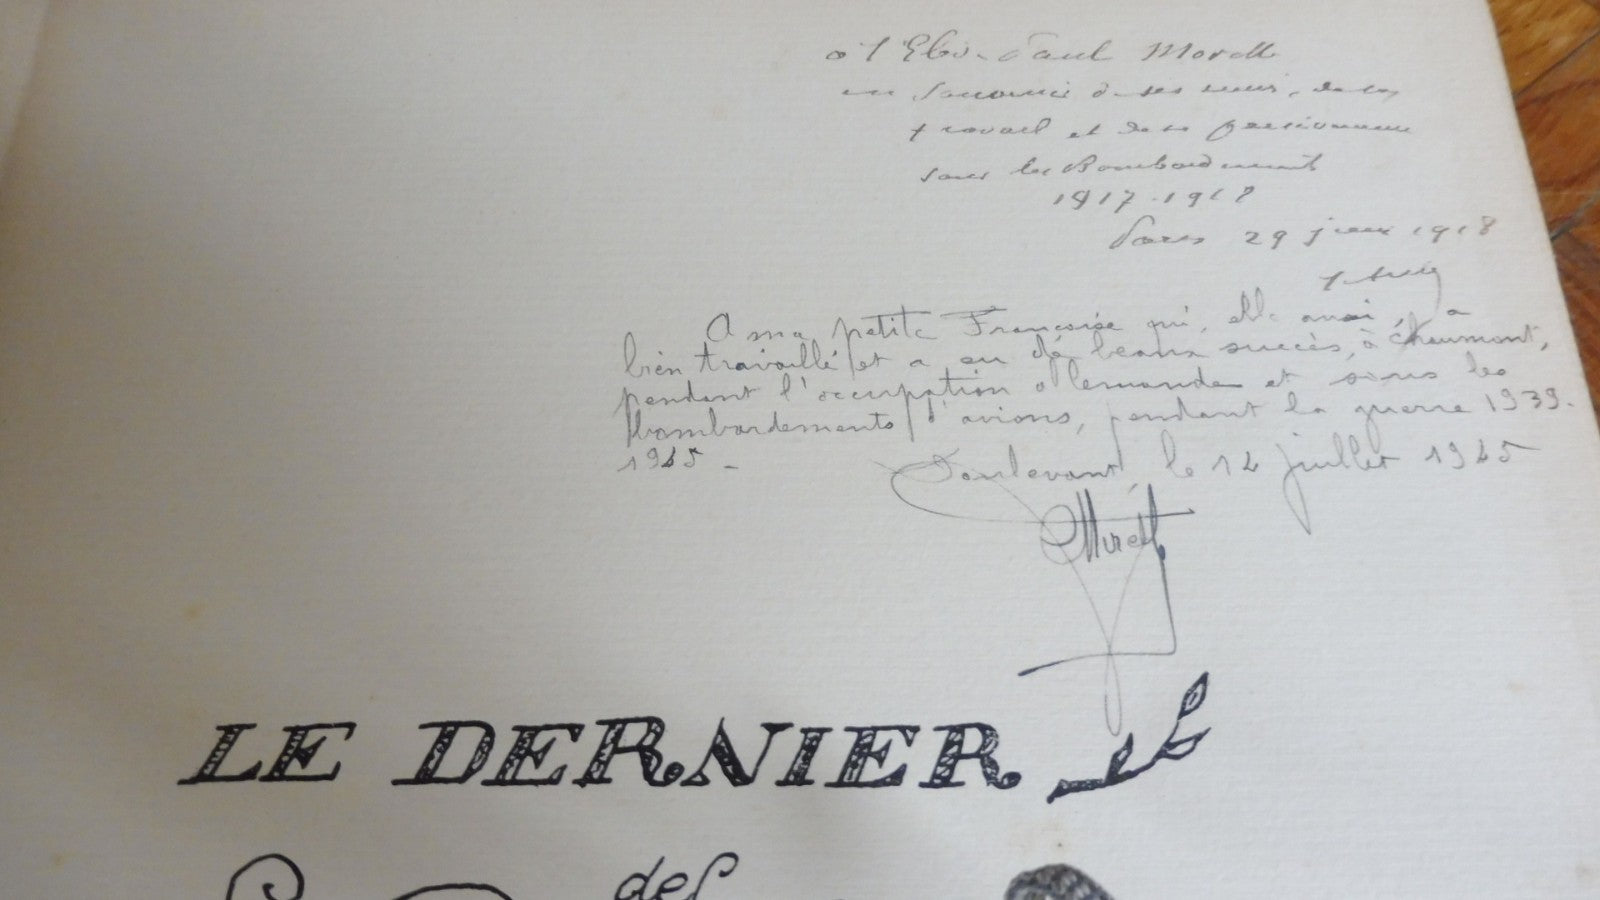 à l'Elève Paul Morell
en souvenir de ses succès, de son
travail et de sa persévérance
sous les Bombardements
1917-1918
Paris 29 juin 1918
A ma petite Françoise qui, elle aussi, a
bien travaillé et a eu de beaux succès, à Chaumont,
pendant l'occupation allemande et sous les
bombardements d'avions, pendant la guerre 1939-
1945 -
Doulevant, le 14 juillet 1945
LE DERNIER
des